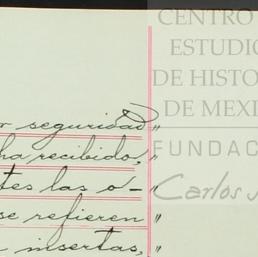 CENTRO
ESTUDIO
DE HISTO
DE MEXI
FUNDAC
Carlos
r seguridad "
ha recibido, "
tes las o- "
se refieren "
n insertas, "